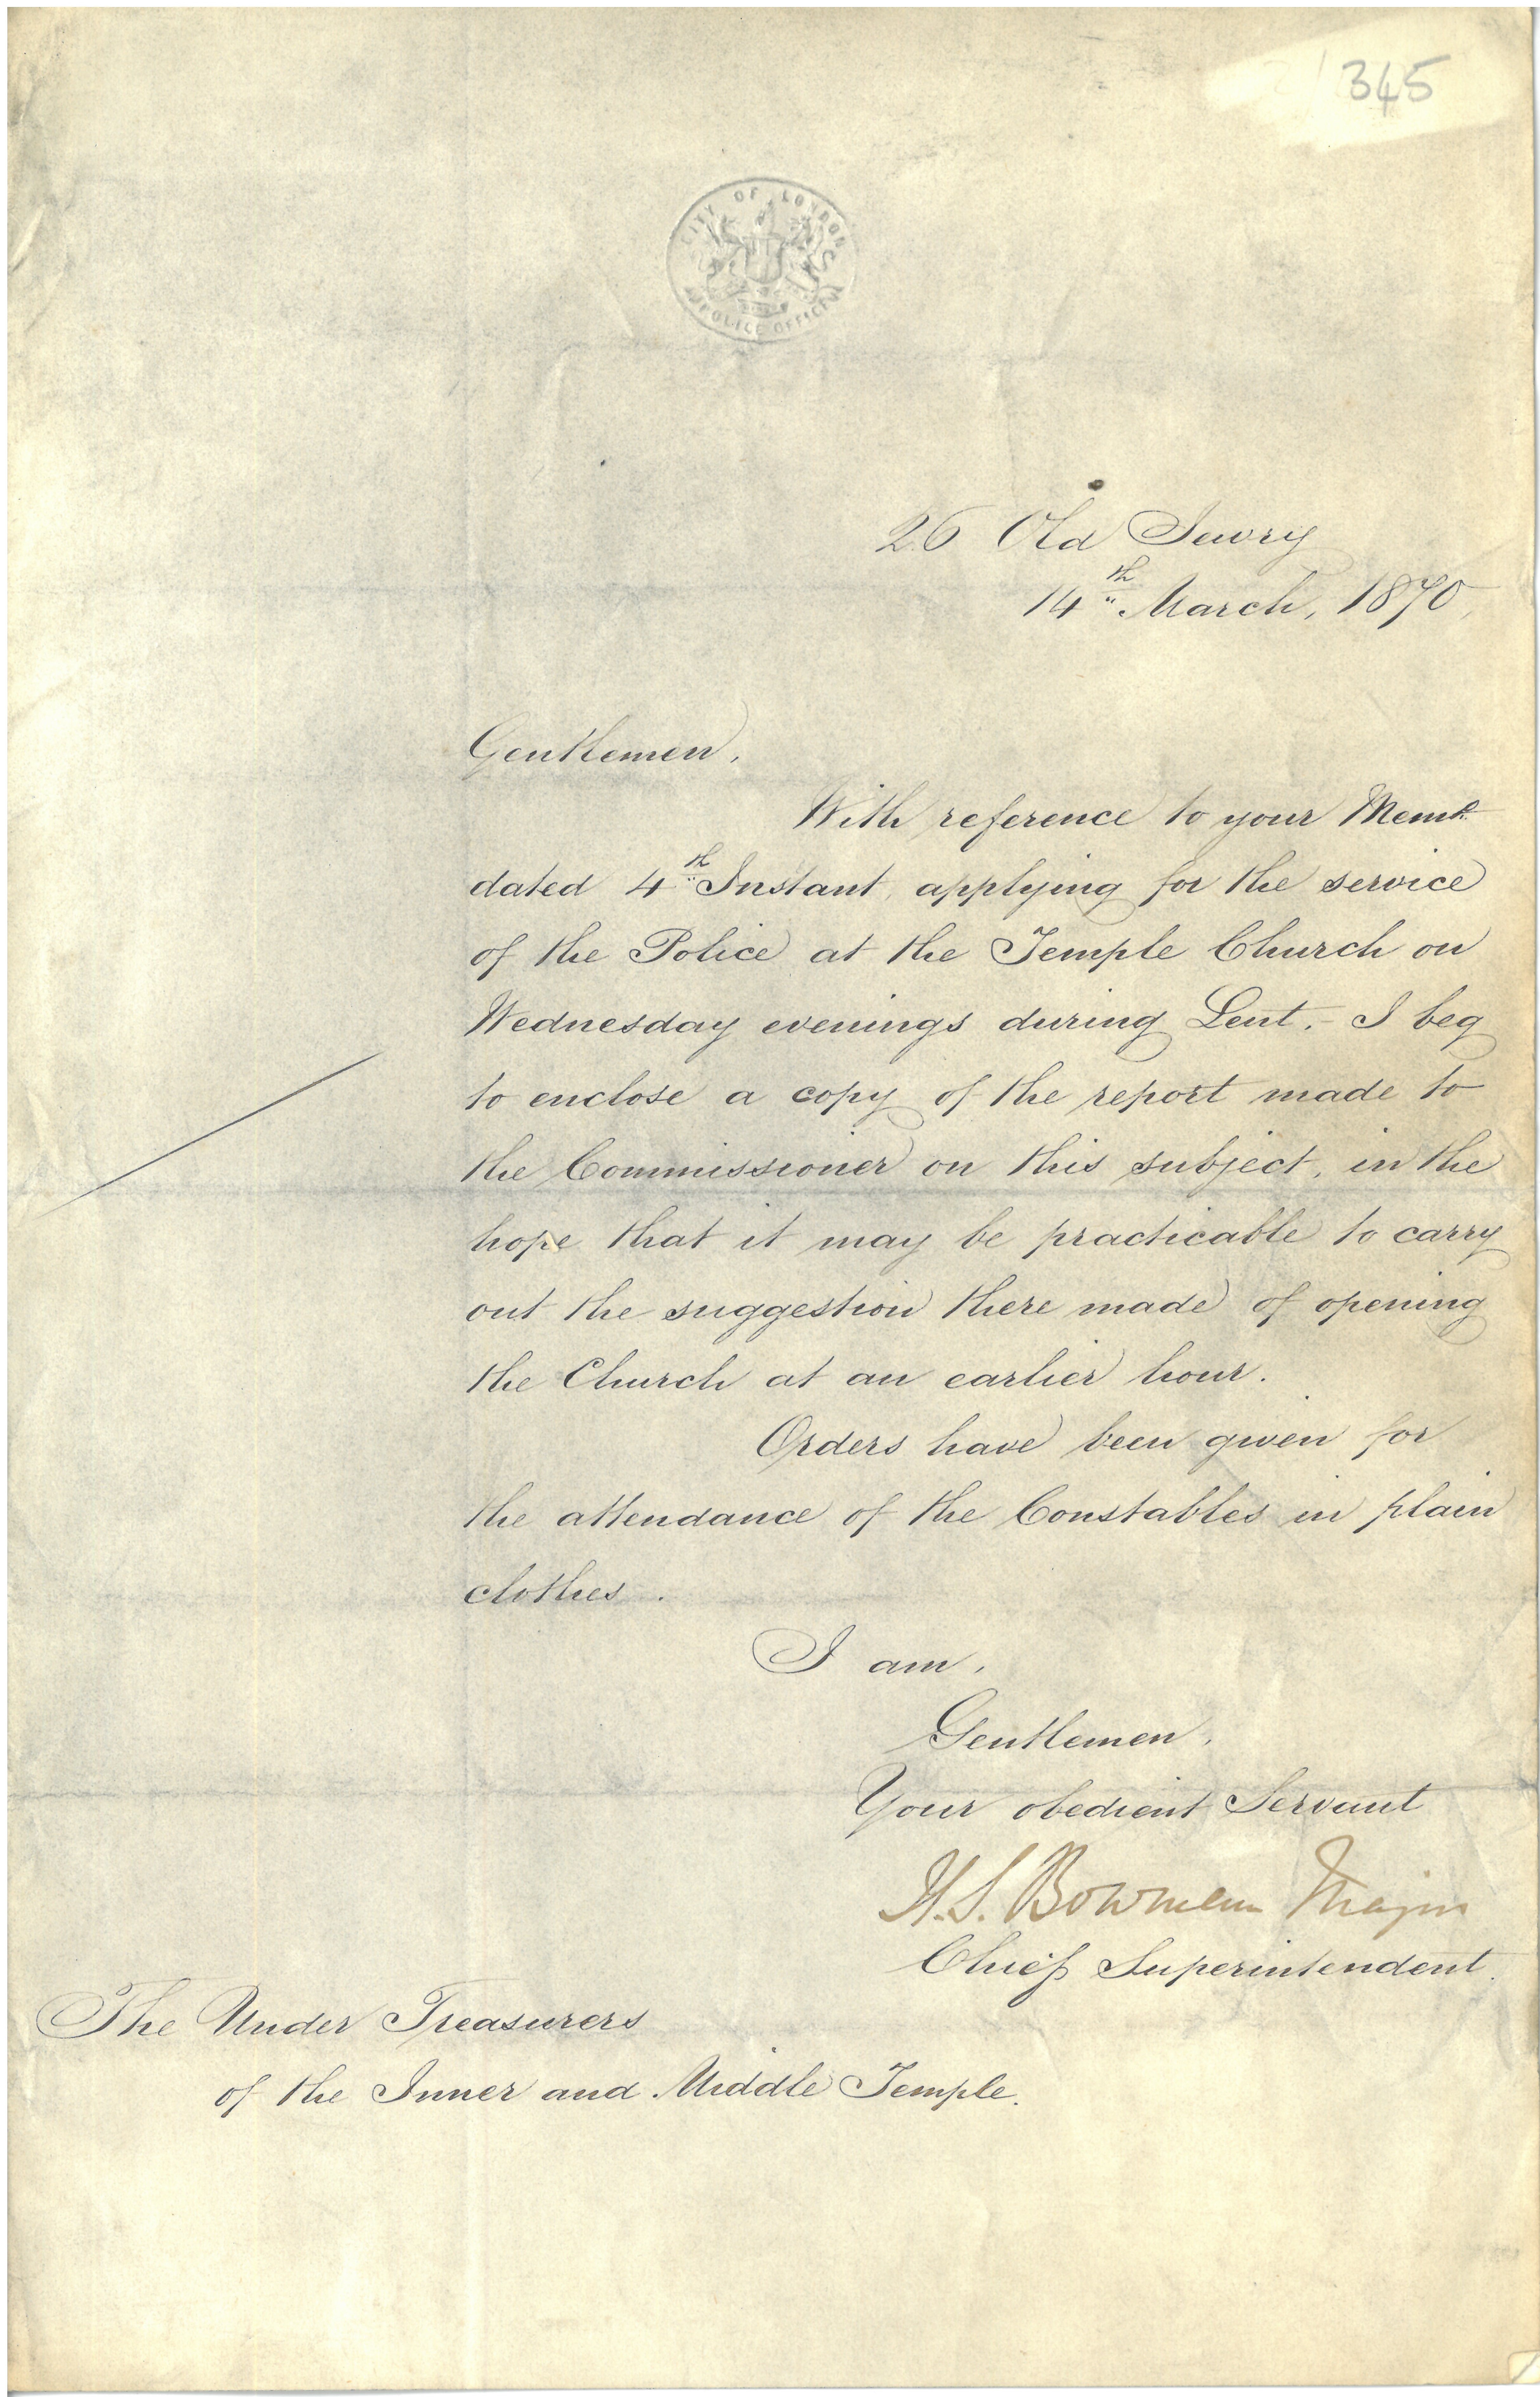 345
CITY OF LONDON
POLICE OFFICE
26 Old Jewry
14th March, 1870,
Gentlemen,
With reference to your Memo.
dated 4th Instant, applying for the service
of the Police at the Temple Church on
Wednesday evenings during Lent. - I beg
to enclose a copy of the report made to
the Commissioner on this subject, in the
hope that it may be practicable to carry
out the suggestion there made of opening
the Church at an earlier hour.
Orders have been given for
the attendance of the Constables in plain
clothes.
I am,
Gentlemen,
Your obedient Servant
H.S. Bowman Major
Chief Superintendent.
The Under Treasurers
of the Inner and Middle Temple.